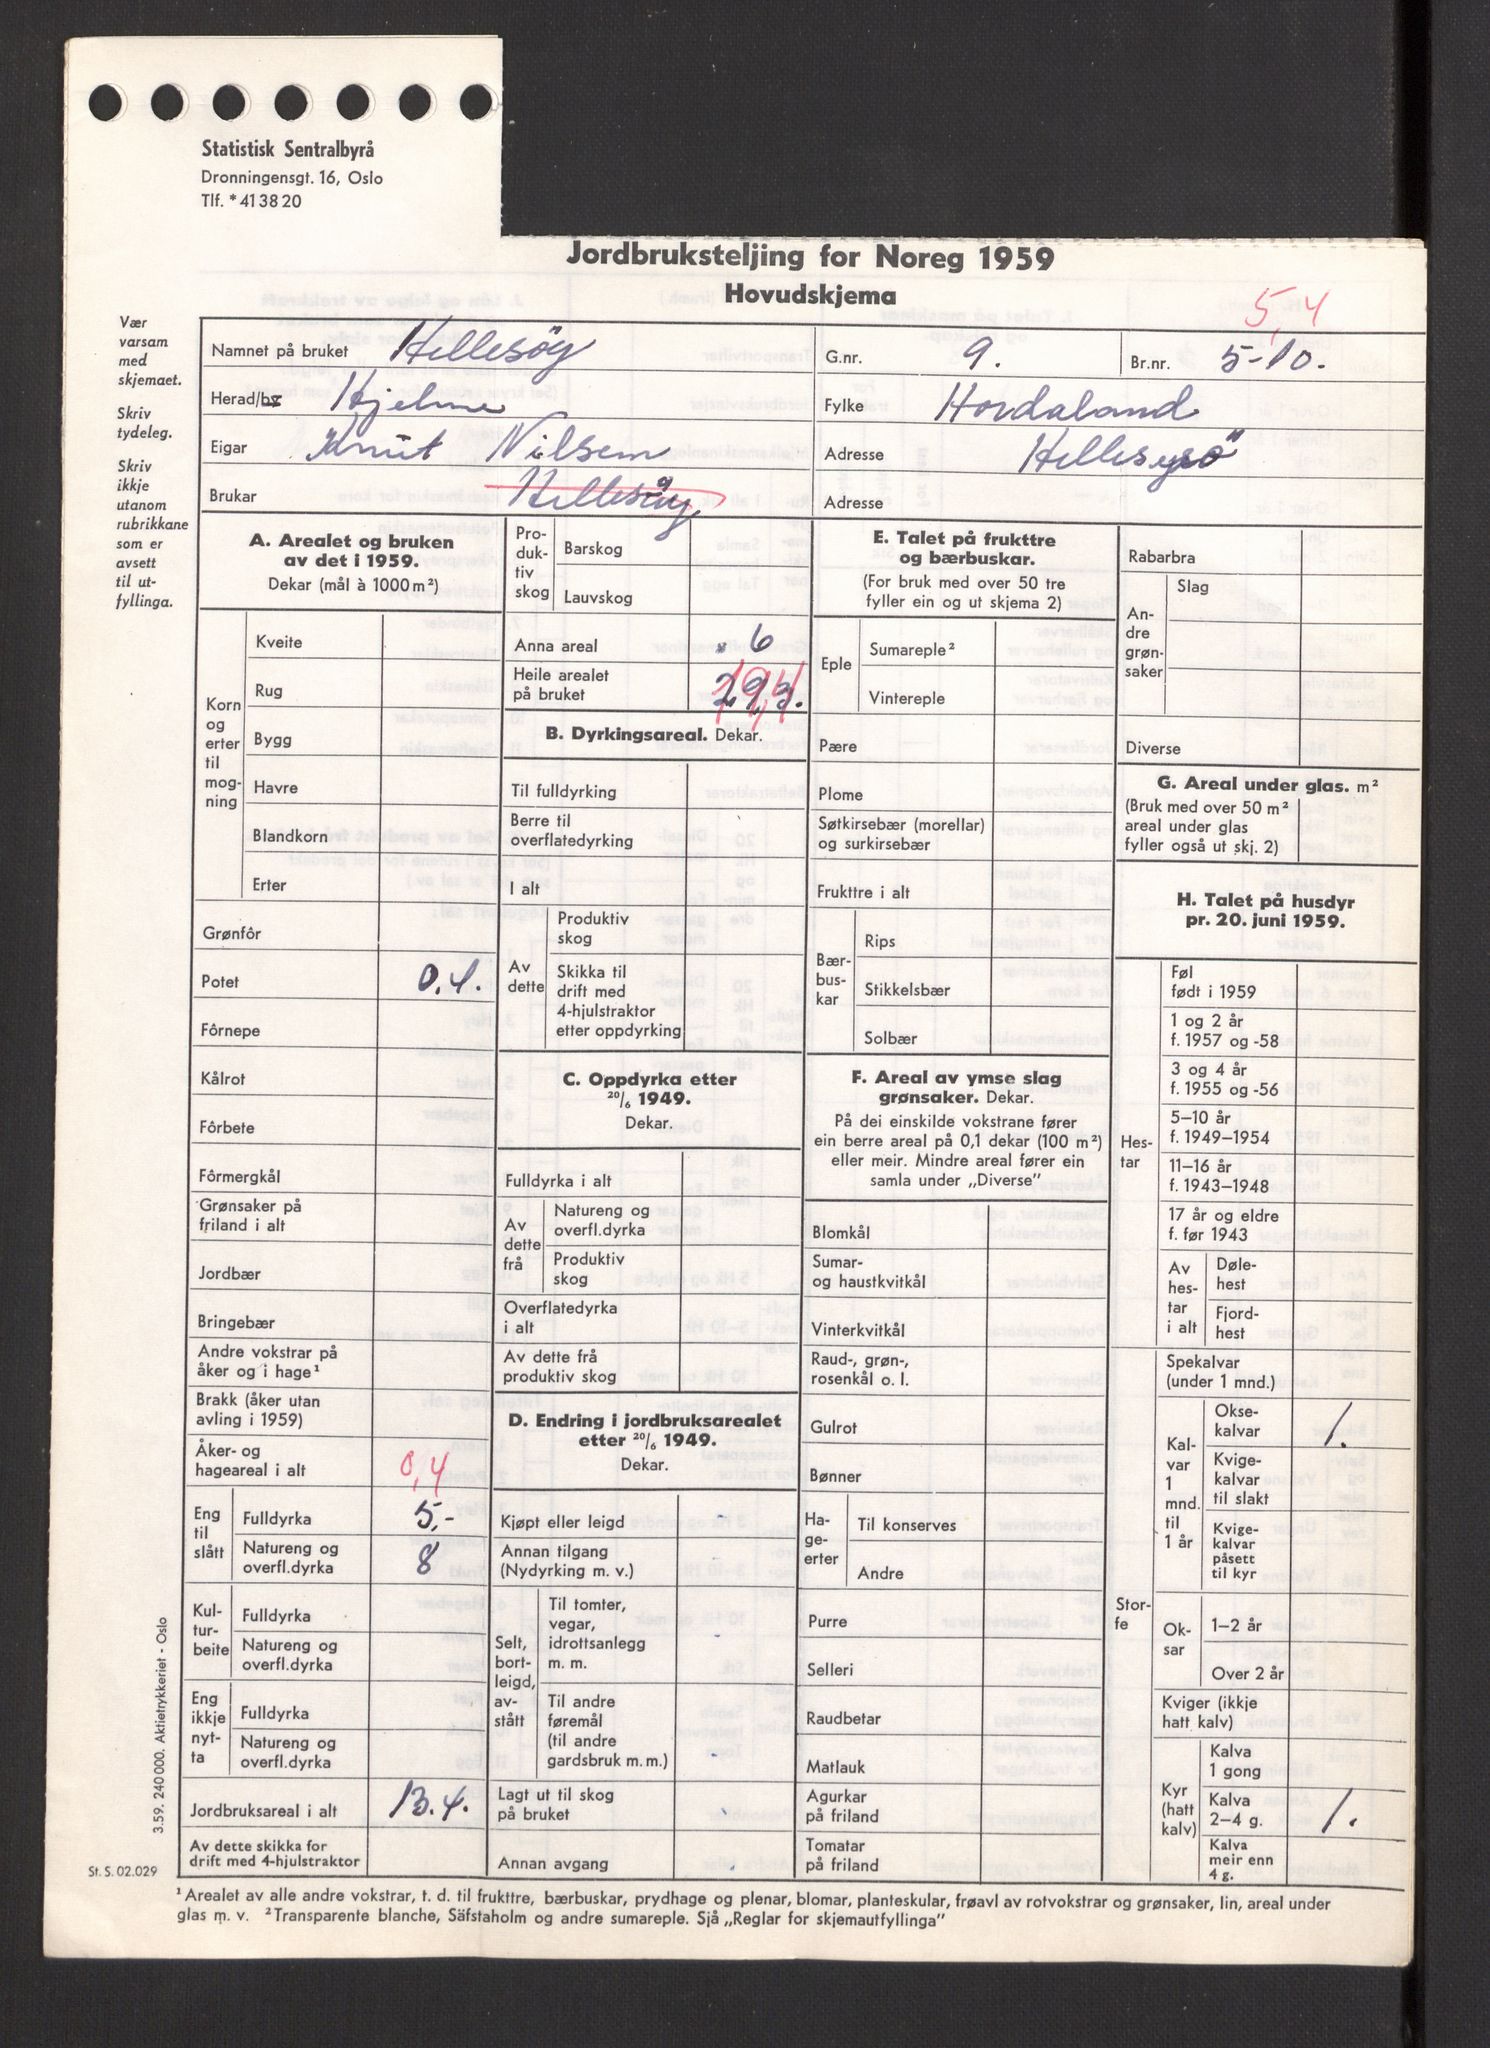 Statistisk Sentralbyrå
Dronningensgt. 16, Oslo
Tlf. * 41 38 20
Jordbruksteljing for Noreg 1959
Hovudskjema
5,4
Vær
varsam
med
skjemaet.
Skriv
tydeleg.
Skriv
ikkje
utanom
rubrikkane
som er
avsett
til ut-
fyllinga.
Namnet på bruket Hellesöy G.nr. 9. Br.nr. 5-10.
Herad/by Hjelme Fylke Hordaland
Eigar Knut Nilsen Adresse
Brukar Hellesöy Adresse
A. Arealet og bruken
av det i 1959.
Dekar (mål à 1000 m²)
Korn
og
erter
til
mog-
ning
Kveite
Rug
Bygg
Havre
Blandkorn
Erter
Grønfôr
Potet 0,4.
Fôrnepe
Kålrot
Fôrbete
Fôrmergkål
Grønsaker på
friland i alt
Jordbær
Bringebær
Andre vokstrar på
åker og i hage¹
Brakk (åker utan
avling i 1959)
Åker- og
hageareal i alt 0,4
Eng
til
slått
Fulldyrka 5,-
Natureng og
overfl.dyrka 8
Kul-
tur-
beite
Fulldyrka
Natureng og
overfl.dyrka
Eng
ikkje
nyt-
ta
Fulldyrka
Natureng og
overfl.dyrka
Jordbruksareal i alt 13.4.
Av dette skikka for
drift med 4-hjulstraktor
Pro-
duk-
tiv
skog
Barskog
Lauvskog
Anna areal 6
Heile arealet
på bruket 19,4
B. Dyrkingsareal. Dekar.
Til fulldyrking
Berre til
overflatedyrking
I alt
Av
dette
Produktiv
skog
Skikka til
drift med
4-hjulstraktor
etter oppdyrking
C. Oppdyrka etter
20/6 1949.
Dekar.
Fulldyrka i alt
Av
dette
frå
Natureng og
overfl.dyrka
Produktiv
skog
Overflatedyrka
i alt
Av dette frå
produktiv skog
D. Endring i jordbruksarealet
etter 20/6 1949.
Dekar.
Kjøpt eller leigd -
Annan tilgang
(Nydyrking m. v.) -
Selt,
bort-
leigd,
av-
stått
Til tomter,
vegar,
idrottsanlegg
m. m. -
Til andre
føremål
(til andre
gardsbruk m. m.) -
Lagt ut til skog
på bruket -
Annan avgang -
E. Talet på frukttre
og bærbuskar.
(For bruk med over 50 tre
fyller ein og ut skjema 2)
Eple
Sumareple²
Vintereple
Pære
Plome
Søtkirsebær (morellar)
og surkirsebær
Frukttre i alt
Bær-
bus-
kar
Rips
Stikkelsbær
Solbær
F. Areal av ymse slag
grønsaker. Dekar.
På dei einskilde vokstrane fører
ein berre areal på 0,1 dekar (100 m²)
eller meir. Mindre areal fører ein
samla under „Diverse”
Blomkål
Sumar-
og haustkvitkål
Vinterkvitkål
Raud-, grøn-,
rosenkål o. l.
Gulrot
Bønner
Ha-
ge-
erter
Til konserves
Andre
Purre
Selleri
Raudbetar
Matlauk
Agurkar
på friland
Tomatar
på friland
Rabarbra
An-
dre
grøn-
saker
Slag
Diverse
G. Areal under glas. m²
(Bruk med over 50 m²
areal under glas
fyller også ut skj. 2)
H. Talet på husdyr
pr. 20. juni 1959.
Hes-
tar
Føl
født i 1959
1 og 2 år
f. 1957 og -58
3 og 4 år
f. 1955 og -56
5–10 år
f. 1949–1954
11–16 år
f. 1943–1948
17 år og eldre
f. før 1943
Av
hes-
tar
i alt
Døle-
hest
Fjord-
hest
Stor-
fe
Spekalvar
(under 1 mnd.)
Kal-
var
1
mnd.
til
1 år
Okse-
kalvar 1.
Kvige-
kalvar
til slakt
Kvige-
kalvar
påsett
til kyr
Ok-
sar
1–2 år
Over 2 år
Kviger (ikkje
hatt kalv)
Kyr
(hatt
kalv)
Kalva
1 gong
Kalva
2–4 g. 1.
Kalva
meir enn
4 g.
3.59. 240 000. Aktietrykkeriet - Oslo
St. S. 02.029
¹ Arealet av alle andre vokstrar, t. d. til frukttre, bærbuskar, prydhage og plenar, blomar, planteskular, frøavl av rotvokstrar og grønsaker, lin, areal under
glas m. v. ² Transparente blanche, Säfstaholm og andre sumareple. Sjå „Reglar for skjemautfyllinga”